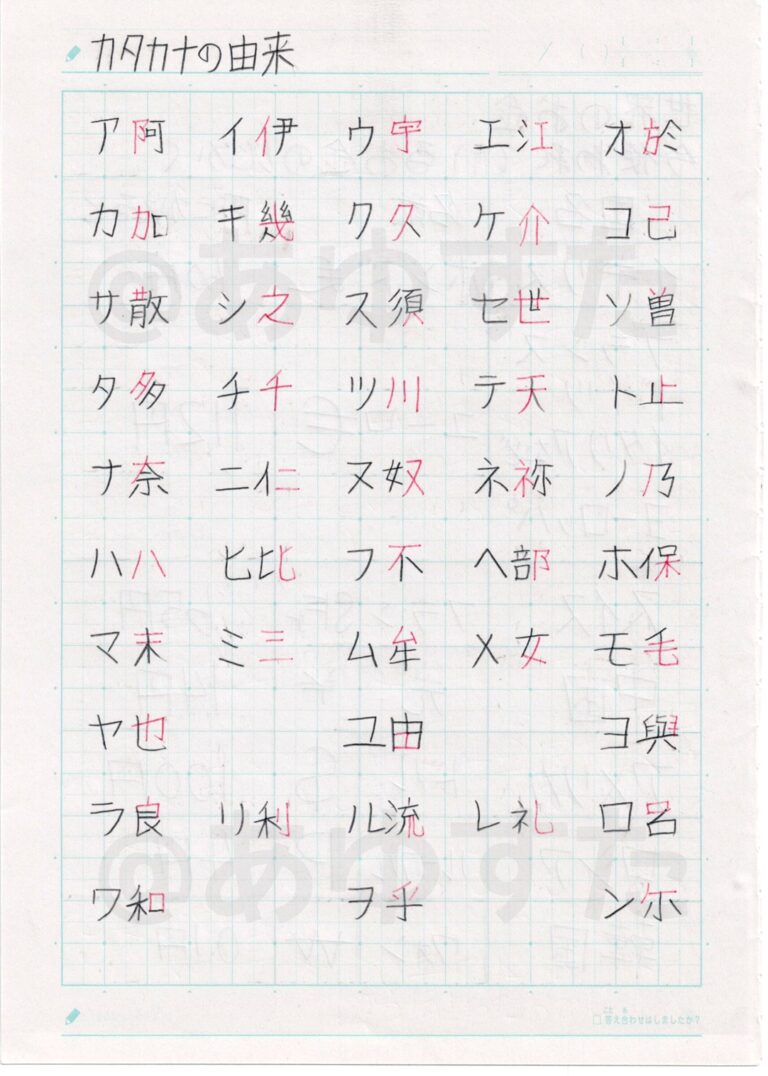 カタカナの由来
ア阿 イ伊 ウ宇 エ江 オ於
カ加 キ幾 ク久 ケ介 コ己
サ散 シ之 ス須 セ世 ソ曽
タ多 チ千 ツ川 テ天 ト止
ナ奈 ニ仁 ヌ奴 ネ祢 ノ乃
ハ八 ヒ比 フ不 ヘ部 ホ保
マ末 ミ三 ム牟 メ女 モ毛
ヤ也 ユ由 ヨ與
ラ良 リ利 ル流 レ礼 ロ呂
ワ和 ヲ乎 ン尓
@あゆすた
@あゆすた
答え合わせはしましたか?